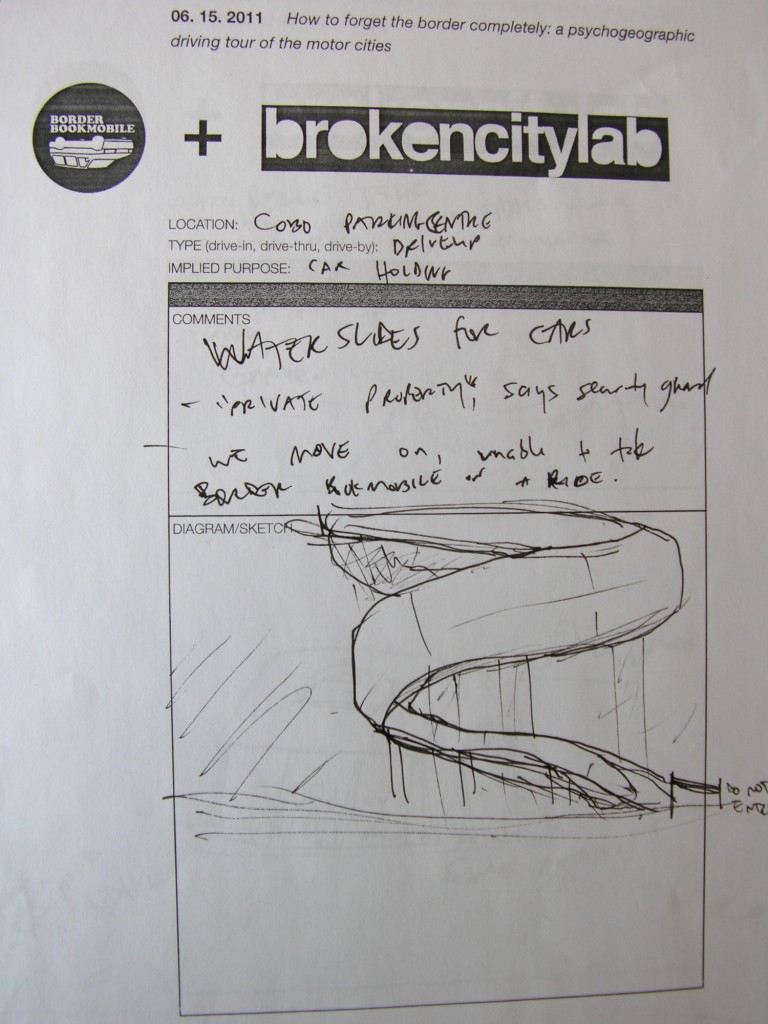 06. 15. 2011 How to forget the border completely: a psychogeographic
driving tour of the motor cities
BORDER
BOOKMOBILE
+
brokencitylab
LOCATION: COBO PARKING CENTRE
TYPE (drive-in, drive-thru, drive-by): DRIVEUP
IMPLIED PURPOSE: CAR HOLDING
COMMENTS
WATER SLIDES for CARS
- "PRIVATE PROPERTY", says security guard
- WE MOVE on, unable to take
BORDER BOOKMOBILE on A RIDE.
DIAGRAM/SKETCH
DO NOT
ENTER